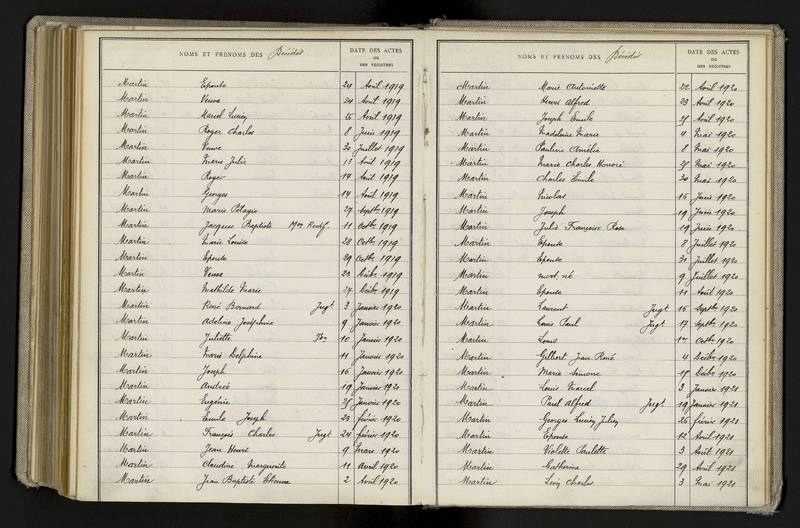 NOMS ET PRENOMS DES Décédés
DATE DES ACTES
OU
DES REGISTRES
Martin Epouse 24 Avril 1919
Martin Veuve 24 Avril 1919
Martin Marcel Lucien 26 Avril 1919
Martin Roger Charles 8 Juin 1919
Martin Veuve 30 Juillet 1919
Martin Marie Julie 13 Août 1919
Martin Roger 14 Août 1919
Martin Georges 14 Août 1919
Martin Marie Pélagie 27 Septbre 1919
Martin Jacques Baptiste Rectif. 11 Octbre 1919
Martin Marie Louise 28 Octbre 1919
Martin Epouse 29 Octbre 1919
Martin Veuve 22 Décbre 1919
Martin Mathilde Marie 27 Décbre 1919
Martin René Bernard Jugt 3 Janvier 1920
Martin Adeline Joséphine 9 Janvier 1920
Martin Juliette 10 Janvier 1920
Martin Marie Delphine 11 Janvier 1920
Martin Joseph 16 Janvier 1920
Martin Andrée 19 Janvier 1920
Martin Eugénie 25 Janvier 1920
Martin Emile Joseph 23 février 1920
Martin François Charles Jugt 24 février 1920
Martin Jean Henri 9 Mars 1920
Martin Claudine Marguerite 11 Avril 1920
Martin Jean Baptiste Etienne 2 Avril 1920
NOMS ET PRENOMS DES Décédés
DATE DES ACTES
OU
DES REGISTRES
Martin Marie Antoinette 22 Avril 1920
Martin Henri Alfred 23 Avril 1920
Martin Joseph Emile 25 Avril 1920
Martin Madeleine Marie 4 Mai 1920
Martin Pauline Amélie 8 Mai 1920
Martin Marie Charles Honoré 25 Mai 1920
Martin Charles Emile 30 Mai 1920
Martin Nicolas 16 Juin 1920
Martin Joseph 19 Juin 1920
Martin Julie Françoise Rose 19 Juin 1920
Martin Epouse 8 Juillet 1920
Martin Epouse 31 Juillet 1920
Martin mort né 9 Juillet 1920
Martin Epouse 11 Août 1920
Martin Laurent Jugt 16 Septbre 1920
Martin Louis Paul Jugt 17 Septbre 1920
Martin Louis 1er Octbre 1920
Martin Gilbert Jean René 4 Décbre 1920
Martin Marie Simone 15 Décbre 1920
Martin Louis Marcel 3 Janvier 1921
Martin Paul Alfred Jugt 19 Janvier 1921
Martin Georges Lucien Julien 26 février 1921
Martin Epouse 12 Avril 1921
Martin Violette Paulette 3 Avril 1921
Martin Catherine 29 Avril 1921
Martin Léon Charles 3 Mai 1921